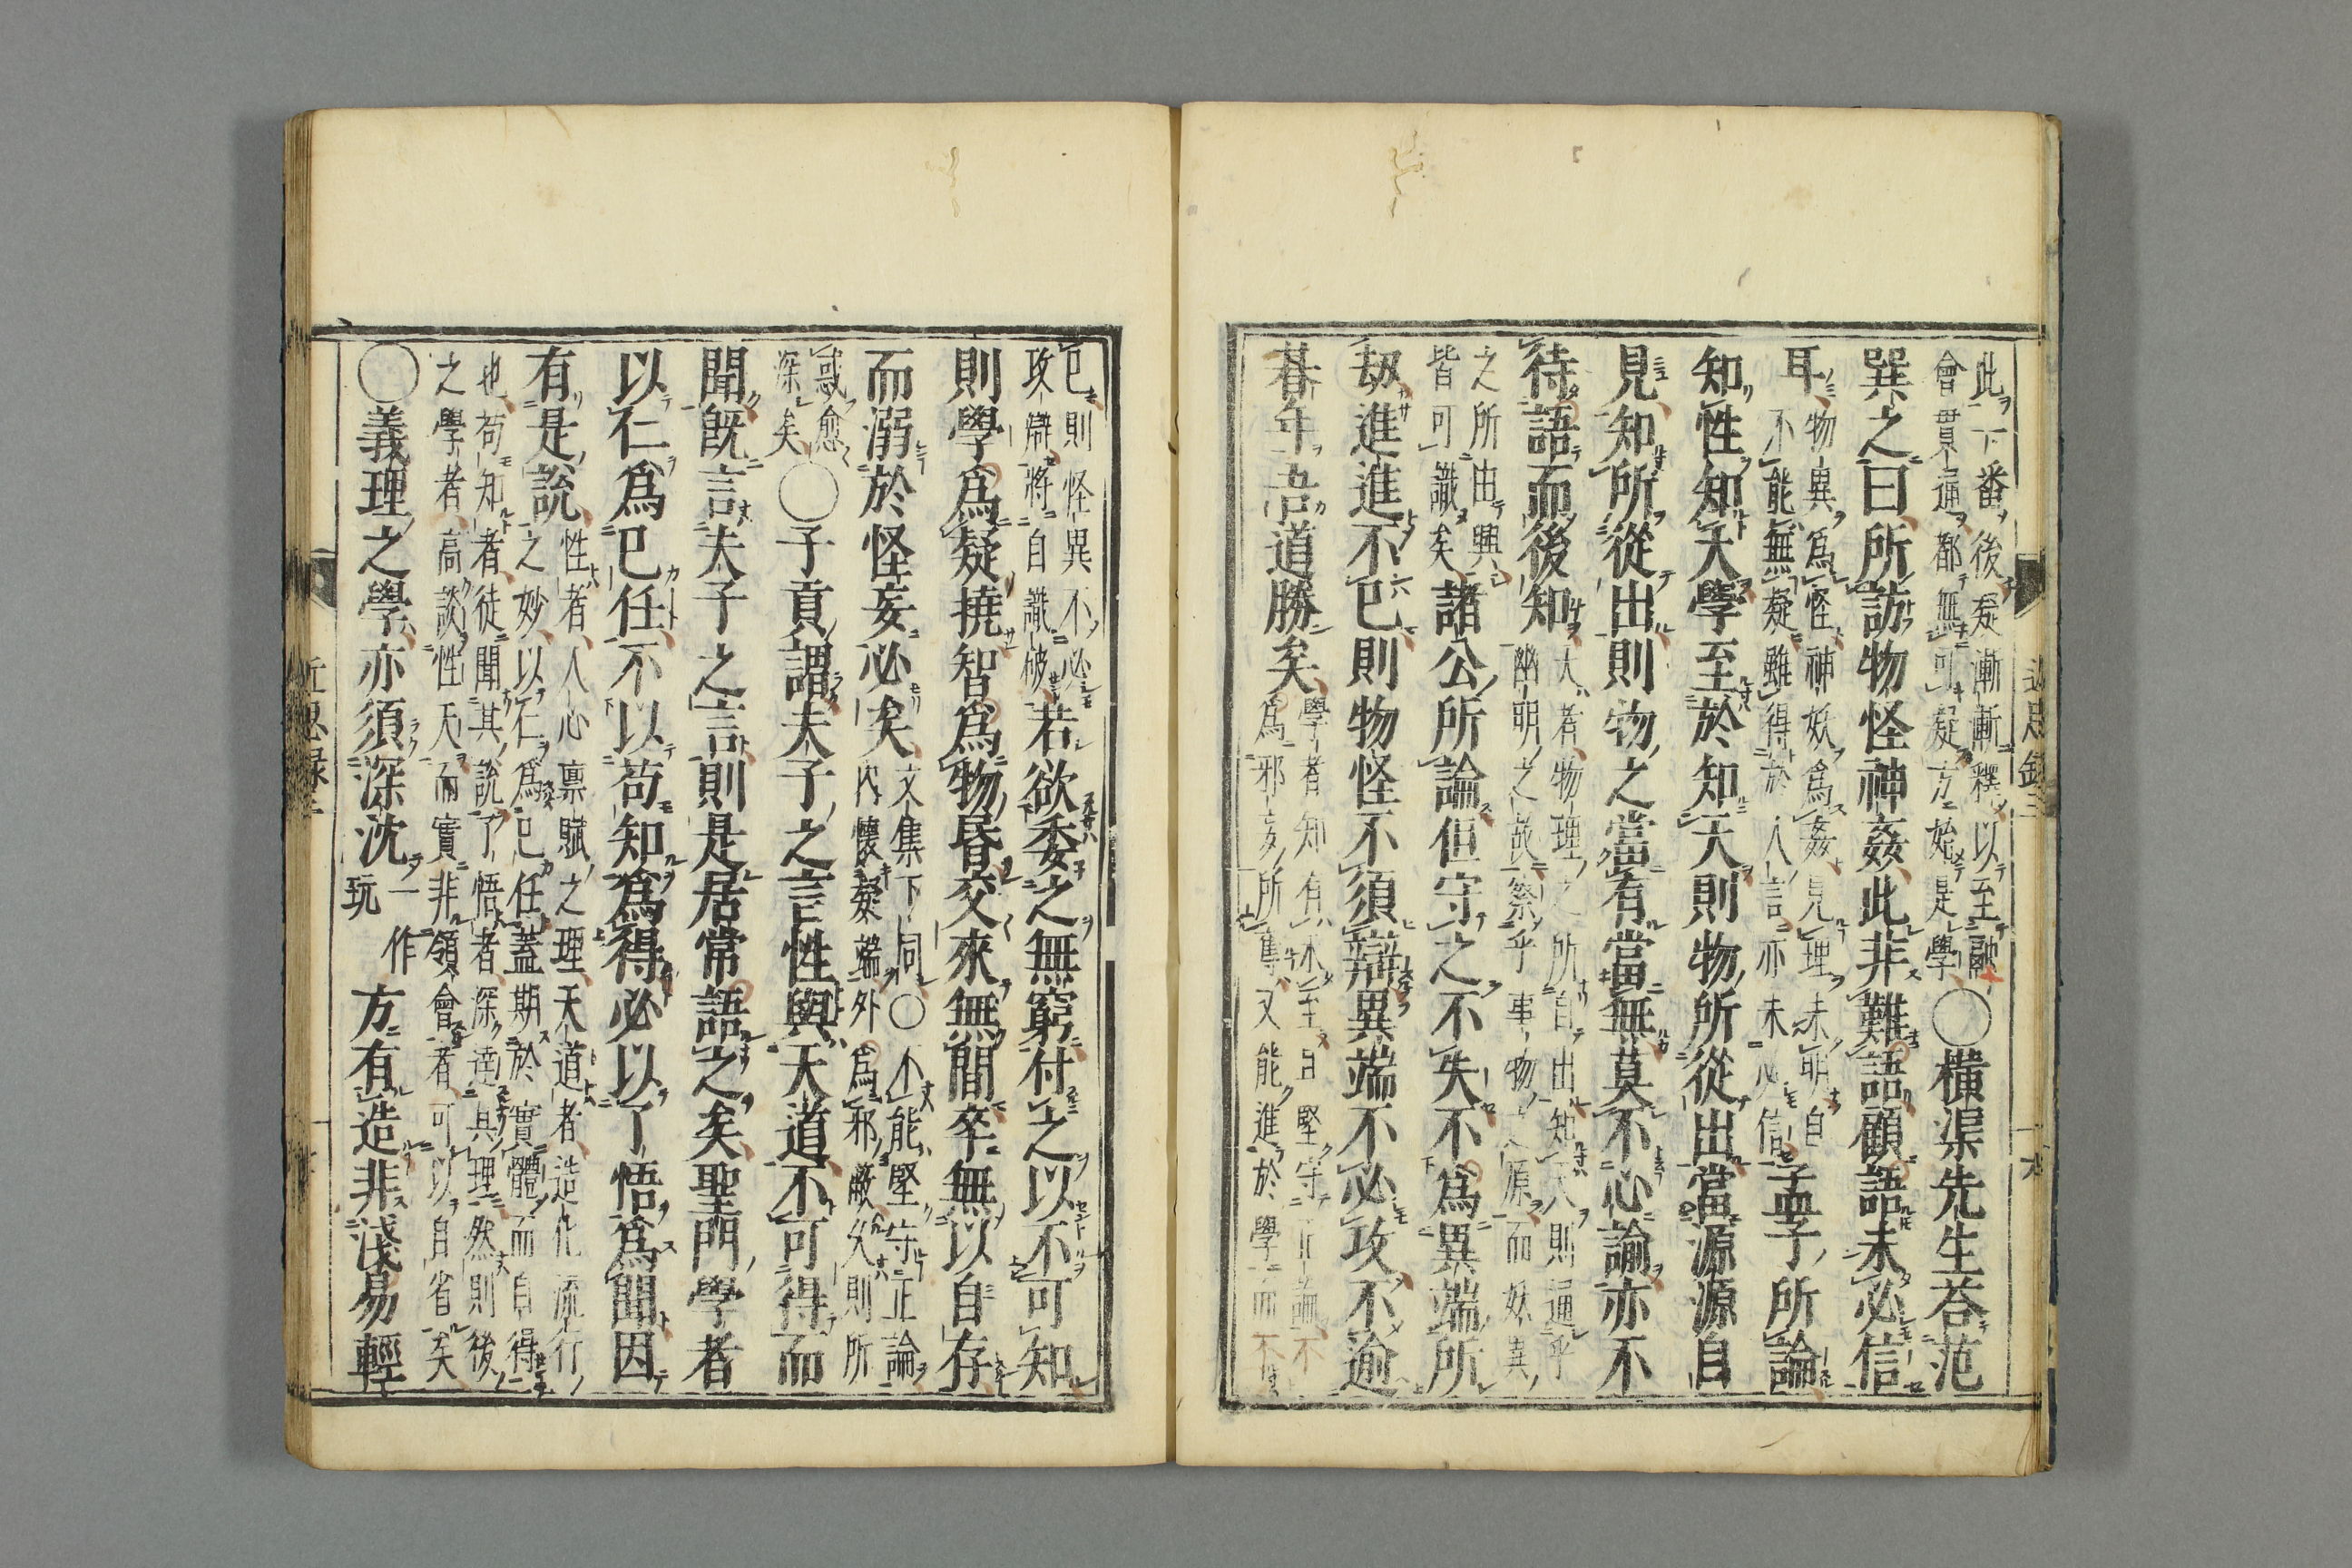 此一番後疑漸漸釋以至融
會貫通都無可疑方始是學
〇橫渠先生荅范
巽之曰所訪物怪神姦此非難語顧語未必信
耳
物異爲怪神妖爲姦見理未明自
不能無疑雖得於人言亦未必信
孟子所論
知性知天學至於知天則物所從出當源源自
見知所從出則物之當有當無莫不心諭亦不
待語而後知
天者物理之所自出知天則通乎
幽明之故察乎事物之原而妖異
之所由興
皆可識矣
諸公所論但守之不失不爲異端所
刼進進不已則物怪不須辯異端不必攻不逾
朞年吾道勝矣
學者知有未至且堅守正論不
爲邪妄所奪又能進於學而不
已則怪異不必
攻辯將自識破
若欲委之無窮付之以不可知
則學爲疑撓智爲物昏交來無間卒無以自存
而溺於怪妄必矣
文集下同〇不能堅守正論
内懷疑端外爲邪蔽久則所
惑愈
深矣
〇子貢謂夫子之言性與天道不可得而
聞旣言夫子之言則是居常語之矣聖門學者
以仁爲已任不以苟知爲得必以了悟爲聞因
有是說
性者人心稟賦之理天道者造化流行
之妙以仁爲已任蓋期於實體而自得
也苟知者徒聞其說了悟者深達其理然則後
之學者高談性天而實非領會者可以自省矣
〇義理之學亦須深沈
一作
玩
方有造非淺易輕
近思録三